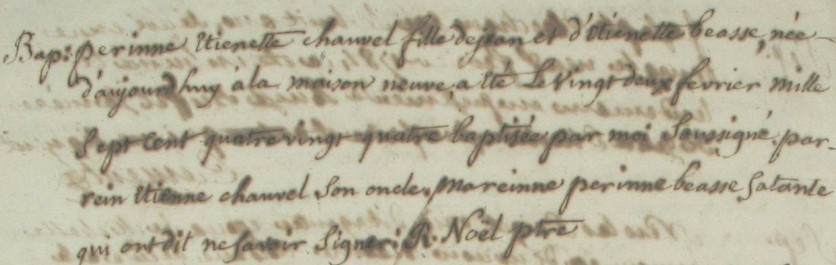 Bap: perinne Etienette chauvel fille dejean et d'Etienette beasse, née
d'aujourd'huy à la maison neuve, a été le vingt deux fevrier mille
Sept cent quatre vingt quatre baptisée par moi Soussigné. par-
rein Etienne chauvel Son oncle, mareinne perinne beasse Satante
qui ont dit ne Savoir Signer: R. Noël ptre